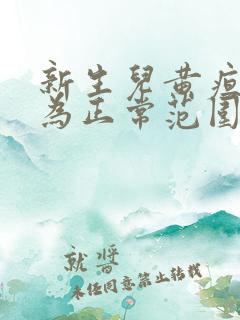 新生儿黄疸
为正常范围
就将
未经同意禁止转载